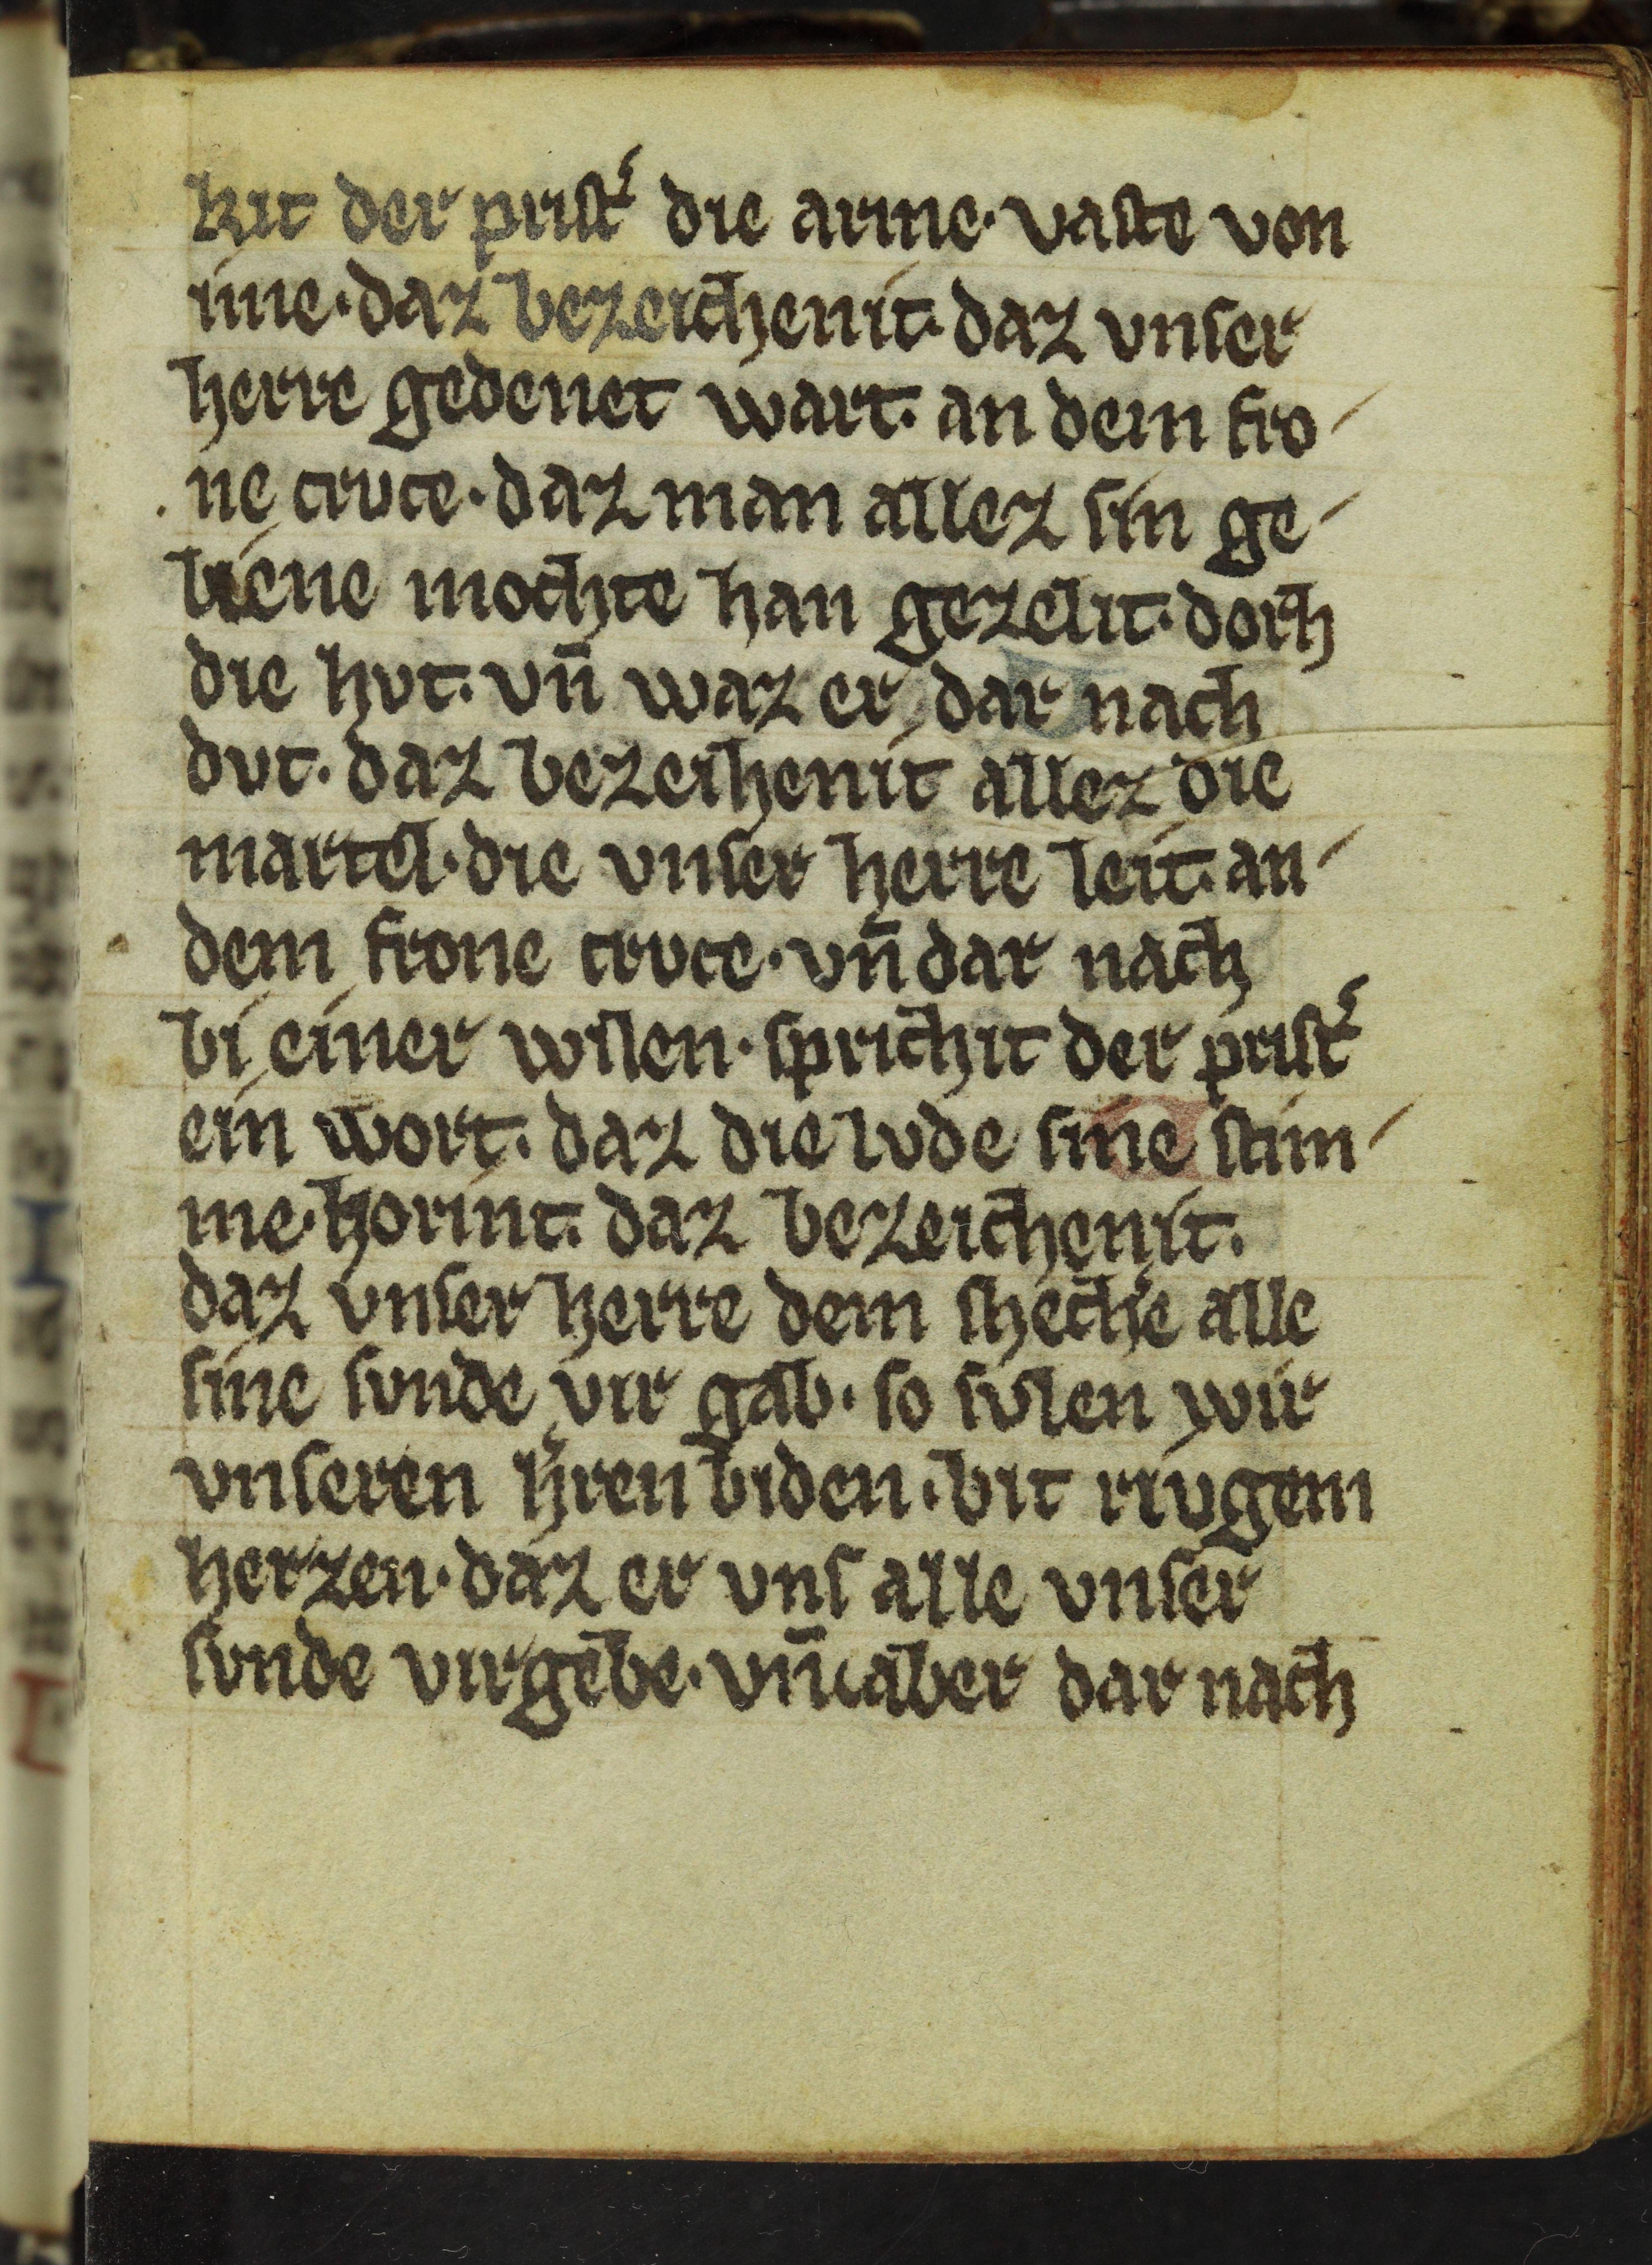 kit der prist᾽ die arme· vaste von
ime· daz bezeichenit· daz vnser
herre gedenet wart· an dem fro-
ne cruce· daz man allez sin ge-
biene mochte han gezelit· dorh
die hvt· vn̄ waz er dar nach
dvt· daz bezeihenit allez die
martel· die vnser herre leit· an-
dem frone cruce· vn̄ dar nach
bi einer wilen· sprichit der prist᾽
ein wort· daz die lvde sine stim-
me· horint· daz bezeichenit·
daz vnser herre dem shechᷣe alle
sine svnde vir gab· so svlen wir
vnseren hᷣren biden· bit rivgem
herzen· daz er vns alle vnser
svnde virgebe· vn̄ aber dar nach